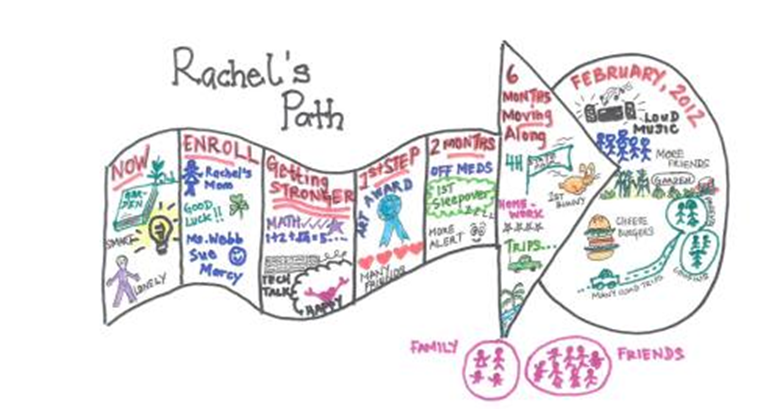 Rachel's
Path
NOW
GAR-
DEN
SMART
LONELY
ENROLL
Rachel's
Mom
GOOD
LUCK!!
Ms. Webb
Sue
Marcy
Getting
STRONGER
MATH
TECH
TALKS
HAPPY
1st STEP
ART AWARD
MANY
FRIENDS
2 MONTHS
OFF MEDS
1ST
Sleepover
ZZZ
MORE
ALERT
6
MONTHS
Moving
Along
4H
STATE
1ST
BUNNY
HOME-
WORK
TRIPS...
FEBRUARY, 2012
LOUD
MUSIC
MORE
FRIENDS
GARDEN
CHEESE
BURGERS
FRIENDS
COUSINS
MANY ROAD TRIPS
FAMILY
FRIENDS